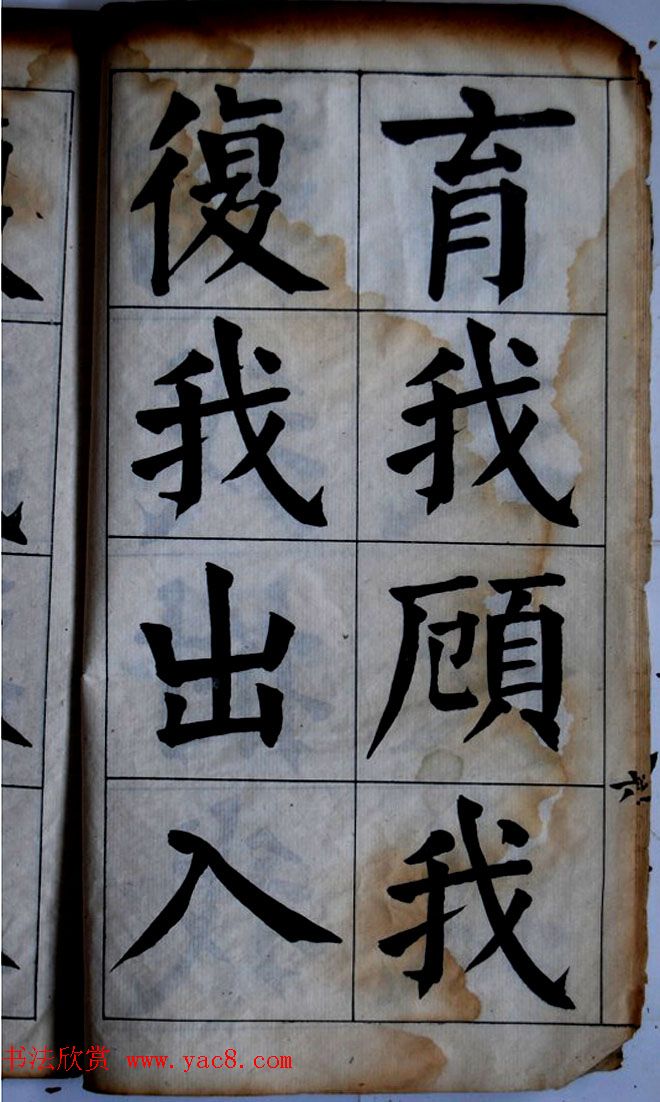 育我顧我
復我出入
书法欣赏 www.yac8.com